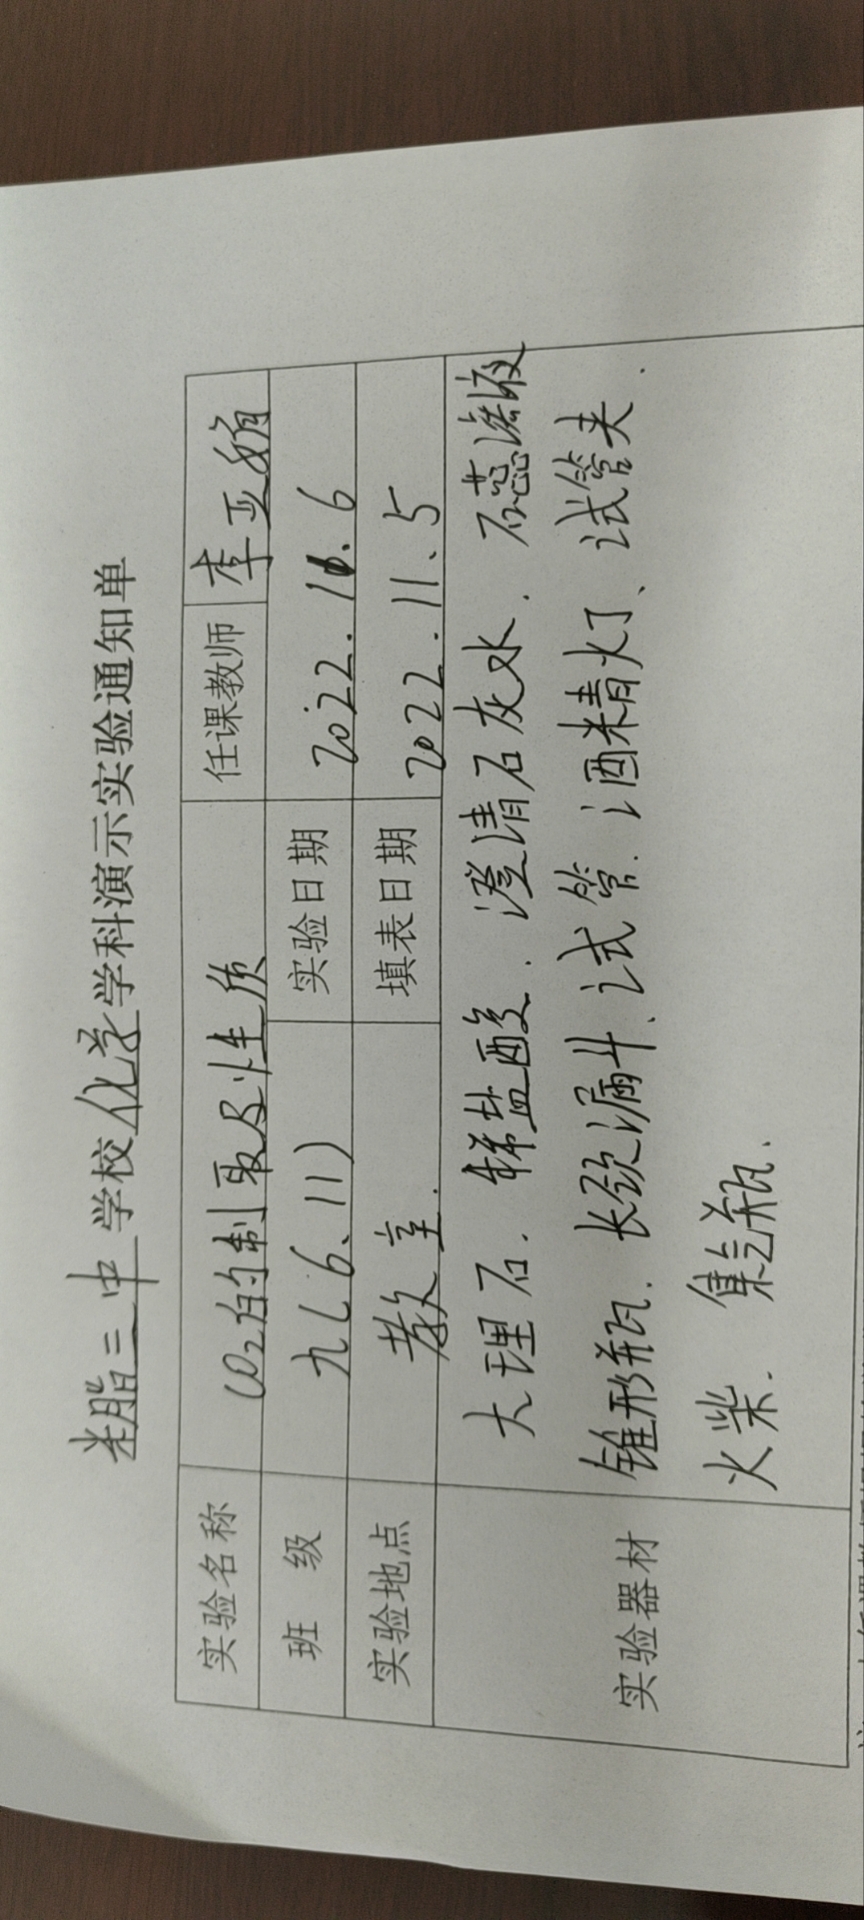 米脂三中学校化学学科演示实验通知单
实验名称 CO2的制取及性质 任课教师 李亚娟
班 级 九(6、11) 实验日期 2022.11.6
实验地点 教室. 填表日期 2022.11.5
实验器材 大理石. 稀盐酸. 澄清石灰水. 石蕊溶液
锥形瓶. 长颈漏斗、试管. 酒精灯、试管夹.
火柴. 集气瓶.